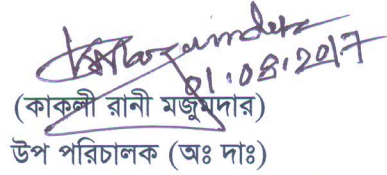 01.08.2017
(কাকলী রানী মজুমদার)
উপ পরিচালক (অঃ দাঃ)